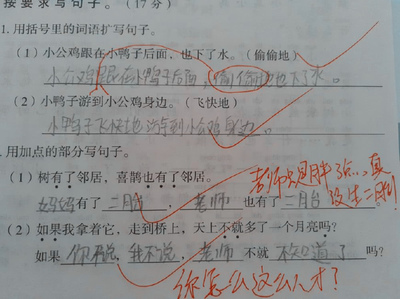 按要求写句子。(17分)
1.用括号里的词语扩写句子。
(1)小公鸡跟在小鸭子后面,也下了水。(偷偷地)
小公鸡跟在小鸭子后面,偷偷地也下了水。
(2)小鸭子游到小公鸡身边。(飞快地)
小鸭子飞快地游到小公鸡身边。
用加点的部分写句子。
(1)树有了邻居,喜鹊也有了邻居。
妈妈有了二胎,老师也有了二胎
老师是胖了……真没生二胎!
(2)如果我拿着它,走到桥上,天上不就多了一个月亮吗?
如果你不说,我不说,老师不就不知道了吗?
你怎么这么人才?